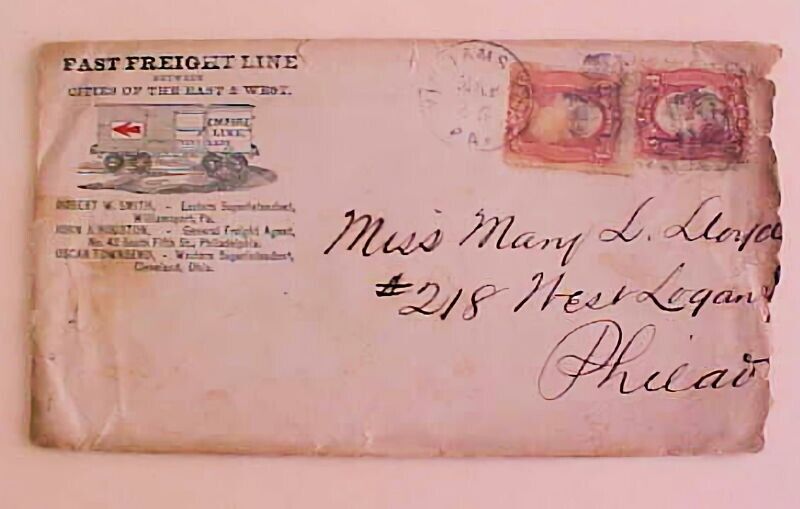 FAST FREIGHT LINE
BETWEEN
CITIES OF THE EAST & WEST.
EMPIRE
LINE
ROBERT W. SMITH, - Eastern Superintendent,
Williamsport, Pa.
JOHN A. HOUSTON, - General Freight Agent,
No. 42 South Fifth St., Philadelphia.
OSCAR TOWNSEND, - Western Superintendent,
Cleveland, Ohio.
PA
Miss Mary L. Lloyd
#218 West Logan
Philad